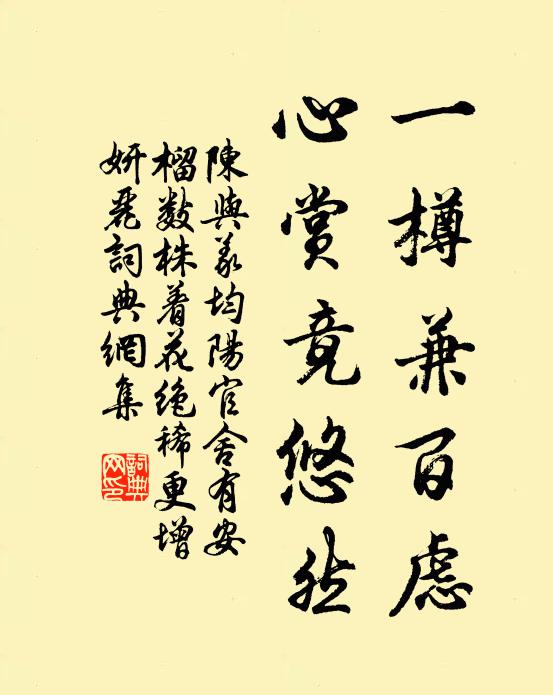 一樽兼百慮
心賞竟悠然
陳與義均陽官舍有安
榴數株着花絶稀更增
妍麗詞典網集
詞典网印